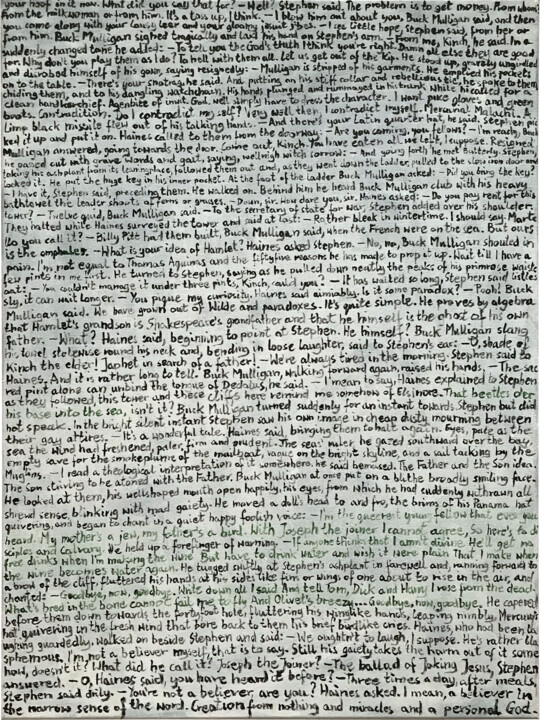 your hoof in it now. What did you call that for? — Well? Stephen said. The problem is to get money. From whom?
From the milkwoman or from him. It's a toss up, I think. — I blow him out about you, Buck Mulligan said, and then
you come along with your lousy leer and your gloomy jesuit jibes. — I see little hope, Stephen said, from her or
from him. Buck Mulligan sighed tragically and laid his hand on Stephen's arm. — From me, Kinch, he said. In a
suddenly changed tone he added: — To tell you the God's truth I think you're right. Damn all else they are good
for. Why don't you play them as I do? To hell with them all. Let us get out of the kip. He stood up, gravely ungirdled
and disrobed himself of his gown, saying resignedly: — Mulligan is stripped of his garments. He emptied his pockets
on to the table. — There's your snotrag, he said. And putting on his stiff collar and rebellious tie, he spoke to them,
chiding them, and to his dangling watchchain. His hands plunged and rummaged in his trunk while he called for a
clean handkerchief. Agenbite of inwit. God, we'll simply have to dress the character. I want puce gloves and green
boots. Contradiction. Do I contradict myself? Very well then, I contradict myself. Mercurial Malachi. A
limp black missile flew out of his talking hands. — And there's your Latin quarter hat, he said. Stephen pic
ked it up and put it on. Haines called to them from the doorway: — Are you coming, you fellows? — I'm ready, Buck
Mulligan answered, going towards the door. Come out, Kinch. You have eaten all we left, I suppose. Resigned
he passed out with grave words and gait, saying, wellnigh with sorrow: — And going forth he met Butterly. Stephen,
taking his ashplant from its leaningplace, followed them out and, as they went down the ladder, pulled to the slow iron door and
locked it. He put the huge key in his inner pocket. At the foot of the ladder Buck Mulligan asked: — Did you bring the key?
— I have it, Stephen said, preceding them. He walked on. Behind him he heard Buck Mulligan club with his heavy
bathtowel the leader shoots of ferns or grasses. — Down, sir. How dare you, sir. Haines asked: — Do you pay rent for this
tower? — Twelve quid, Buck Mulligan said. — To the secretary of state for war, Stephen added over his shoulder.
They halted while Haines surveyed the tower and said at last: — Rather bleak in wintertime, I should say. Martello
you call it? — Billy Pitt had them built, Buck Mulligan said, when the French were on the sea. But ours
is the omphalos. — What is your idea of Hamlet? Haines asked Stephen. — No, no, Buck Mulligan shouted in
pain. I'm not equal to Thomas Aquinas and the fiftyfive reasons he has made to prop it up. Wait till I have a
few pints in me first. He turned to Stephen, saying as he pulled down neatly the peaks of his primrose waist
coat: — You couldn't manage it under three pints, Kinch, could you? — It has waited so long, Stephen said listles
sly, it can wait longer. — You pique my curiosity, Haines said amiably. Is it some paradox? — Pooh! Buck
Mulligan said. We have grown out of Wilde and paradoxes. It's quite simple. He proves by algebra
that Hamlet's grandson is Shakespeare's grandfather and that he himself is the ghost of his own
father. — What? Haines said, beginning to point at Stephen. He himself? Buck Mulligan slung
his towel stolewise round his neck and, bending in loose laughter, said to Stephen's ear: — O, shade of
Kinch the elder! Japhet in search of a father! — We're always tired in the morning, Stephen said to
Haines. And it is rather long to tell. Buck Mulligan, walking forward again, raised his hands. — The sac
red pint alone can unbind the tongue of Dedalus, he said. — I mean to say, Haines explained to Stephen
as they followed, this tower and these cliffs here remind me somehow of Elsinore. That beetles o'er
his base into the sea, isn't it? Buck Mulligan turned suddenly for an instant towards Stephen but did
not speak. In the bright silent instant Stephen saw his own image in cheap dusty mourning between
their gay attires. — It's a wonderful tale, Haines said, bringing them to halt again. Eyes, pale as the
sea the wind had freshened, paler, firm and prudent. The seas' ruler, he gazed southward over the bay,
empty save for the smokeplume of the mailboat, vague on the bright skyline, and a sail tacking by the
Muglins. — I read a theological interpretation of it somewhere, he said bemused. The Father and the Son idea.
The Son striving to be atoned with the Father. Buck Mulligan at once put on a blithe broadly smiling face.
He looked at them, his wellshaped mouth open happily, his eyes, from which he had suddenly withdrawn all
shrewd sense, blinking with mad gaiety. He moved a doll's head to and fro, the brims of his Panama hat
quivering, and began to chant in a quiet happy foolish voice: — I'm the queerest young fellow that ever you
heard. My mother's a jew, my father's a bird. With Joseph the joiner I cannot agree, So here's to di
sciples and Calvary. He held up a forefinger of warning. — If anyone thinks that I amn't divine He'll get no
free drinks when I'm making the wine But have to drink water and wish it were plain That I make when
the wine becomes water again. He tugged swiftly at Stephen's ashplant in farewell and, running forward to
a brow of the cliff, fluttered his hands at his sides like fins or wings of one about to rise in the air, and
chanted: — Goodbye, now, goodbye. Write down all I said And tell Tom, Dick and Harry I rose from the dead.
What's bred in the bone cannot fail me to fly And Olivet's breezy... Goodbye, now, goodbye. He capered
before them down towards the fortyfoot hole, fluttering his winglike hands, leaping nimbly, Mercury's
hat quivering in the fresh wind that bore back to them his brief birdlike cries. Haines, who had been la
ughing guardedly, walked on beside Stephen and said: — We oughtn't to laugh, I suppose. He's rather bla
sphemous. I'm not a believer myself, that is to say. Still his gaiety takes the harm out of it some
how, doesn't it? What did he call it? Joseph the Joiner? — The ballad of Joking Jesus, Stephen
answered. — O, Haines said, you have heard it before? — Three times a day, after meals,
Stephen said drily. — You're not a believer, are you? Haines asked. I mean, a believer in
the narrow sense of the word. Creation from nothing and miracles and a personal God.